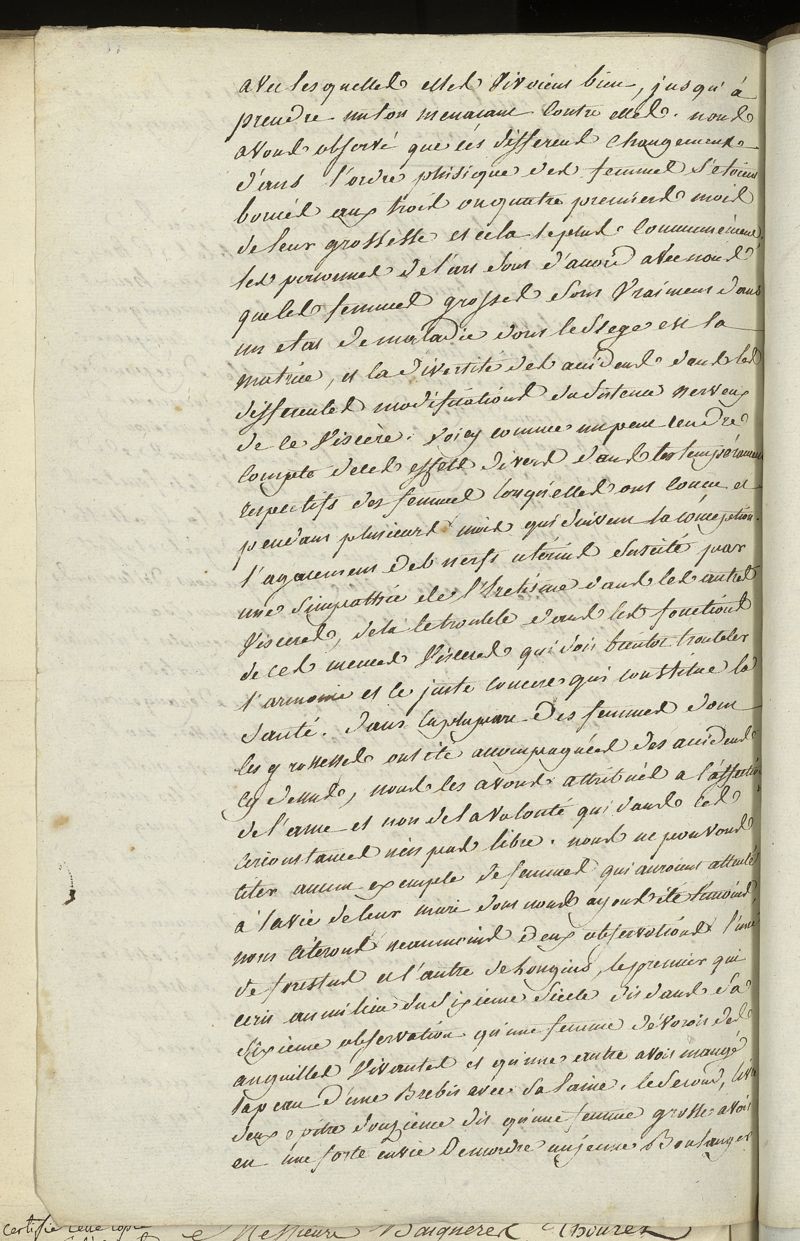 avec lesquelles elles vivoient bien, jusqu'à
prendre un ton menacant contre elles. nous
avons observé que ces different changements
d'ans l'ordre phisique des femmes s'etoient
bornés aux trois ou quatre premiers mois
de leur grossesse et cela le plus communément
les personnes de l'art sont d'accord avec nous
que les femmes grosses sont vraiment dans
un etat de maladie dont le siege est la
matrice, et la diversité des accidens dans les
differentes modifications du sisteme nerveux
de ce viscère. voicy comme on peut rendre
compte de ces effets divers dans les temperamens
respectifs des femmes lorsqu'elles ont concu et
pendans plusieurs mois qui suivent la conception.
l'agacement des nerfs uterins suscité par
une simpathie de l'Eretisme dans les autres
visceres, de là le trouble dans les fonctions
de ces memes visceres qui doit bientot troubler
l'armonie et le juste concert qui constitue la
santé. dans la plupart des femmes dont
les grossesses ont été accompagnées des accidens
cy dessus, nous les avons attribués a l'affection
de l'ame et non de la volonté qui dans ces
circonstances n'est pas libre. nous ne pouvons
citer aucun exemple de femmes qui auroient attenté
à la vie de leur mari dont nous ayons été temoins,
nous citerons neanmoins deux observations l'une
de forestus et l'autre de Longius, le premier qui
ecrit au milieu du sixieme siecle dit dans sa
sixieme observation qu'une femme dévoroit des
anguilles vivantes et qu'une autre avoit mangé
la peau d'une Brebis avec sa laine. le second, livre
deux epitre douzieme dit qu'une femme grosse avoit
eu une forte envie de mordre un jeune Boulanger
Certifié cette copie
Messieurs Baignères Thouret